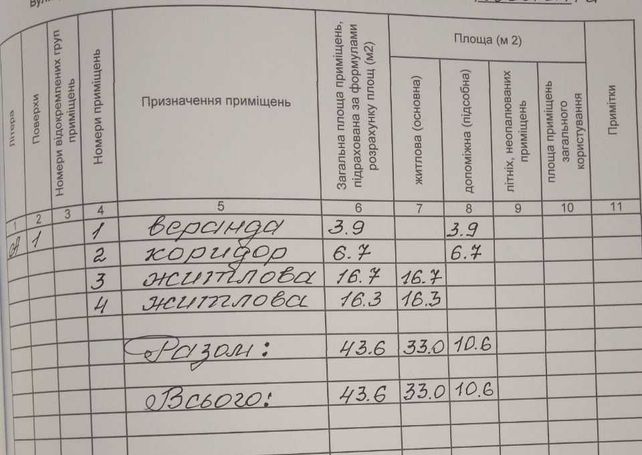 Літера
Поверхи
Номери відокремлених груп приміщень
Номери приміщень
Призначення приміщень
Загальна площа приміщень, підрахована за формулами розрахунку площ (м2)
Площа (м 2)
житлова (основна)
допоміжна (підсобна)
літніх, неопалюваних приміщень
площа приміщень загального користування
Примітки
1 2 3 4 5 6 7 8 9 10 11
1 1 веранда 3.9 3.9
2 коридор 6.7 6.7
3 житлова 16.7 16.7
4 житлова 16.3 16.3
Разом: 43.6 33.0 10.6
Всього: 43.6 33.0 10.6